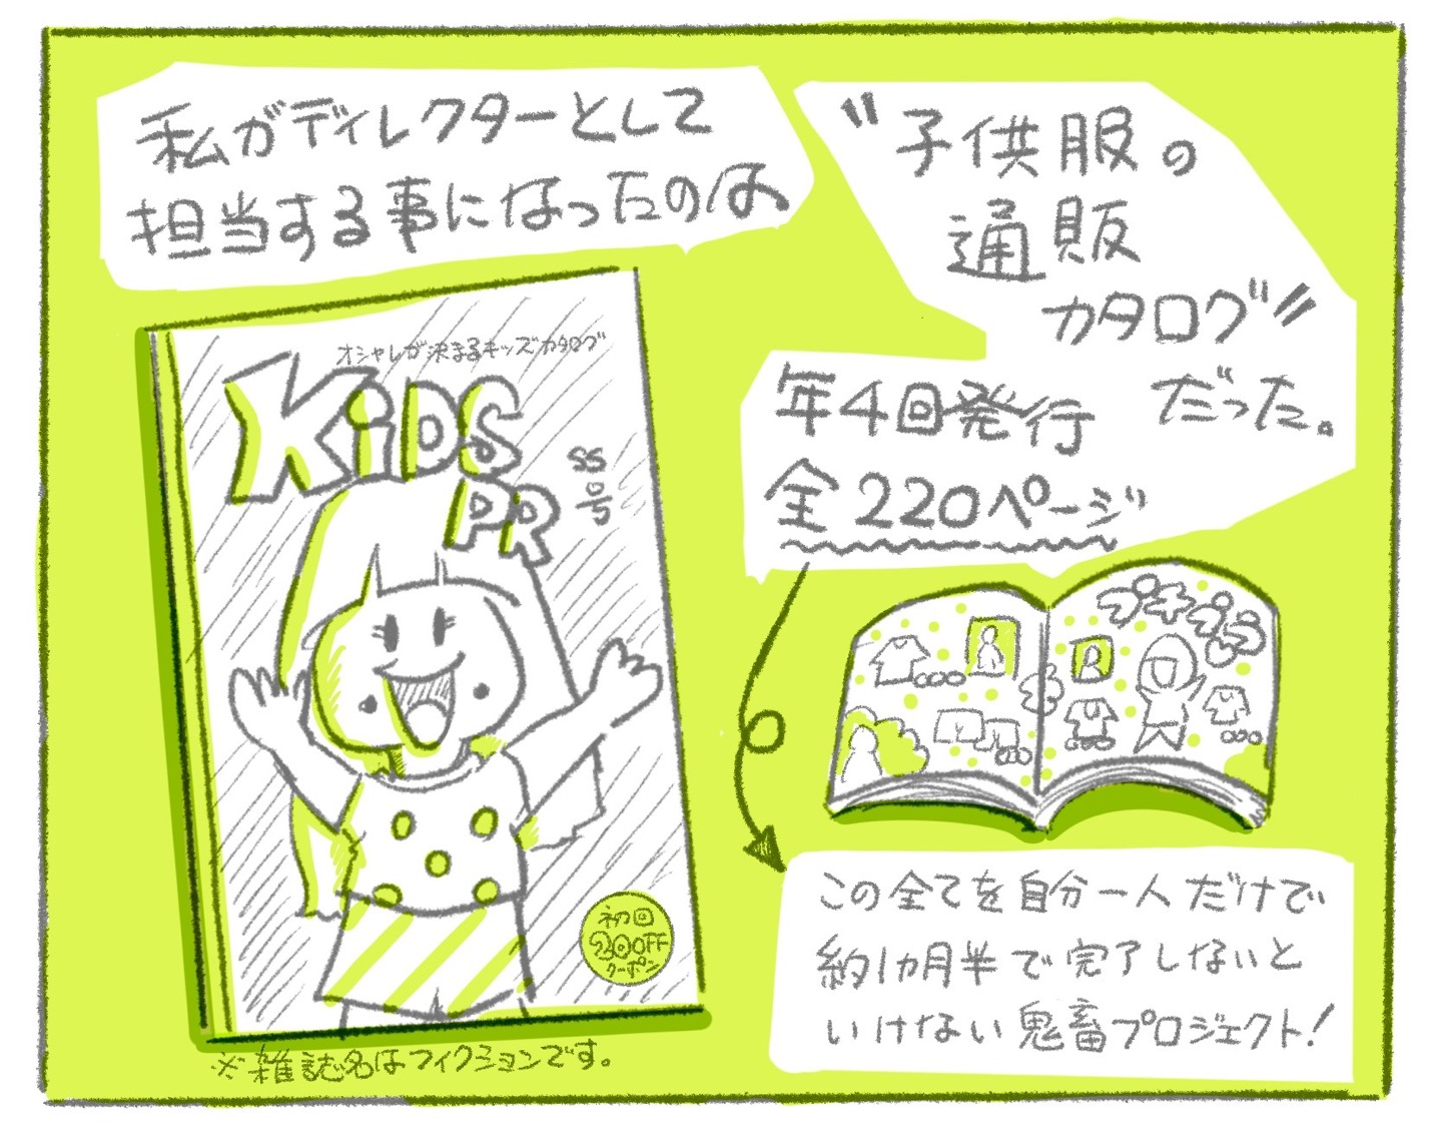 私がディレクターとして
担当する事になったのは、
"子供服の
通販
カタログ"
だった。
年4回発行
全220ページ
オシャレが決まるキッズカタログ
KiDS
PR
SS
号
初回
20OFF
クーポン
※雑誌名はフィクションです。
プチプラ
この全てを自分一人だけで
約1カ月半で完了しないと
いけない鬼畜プロジェクト!